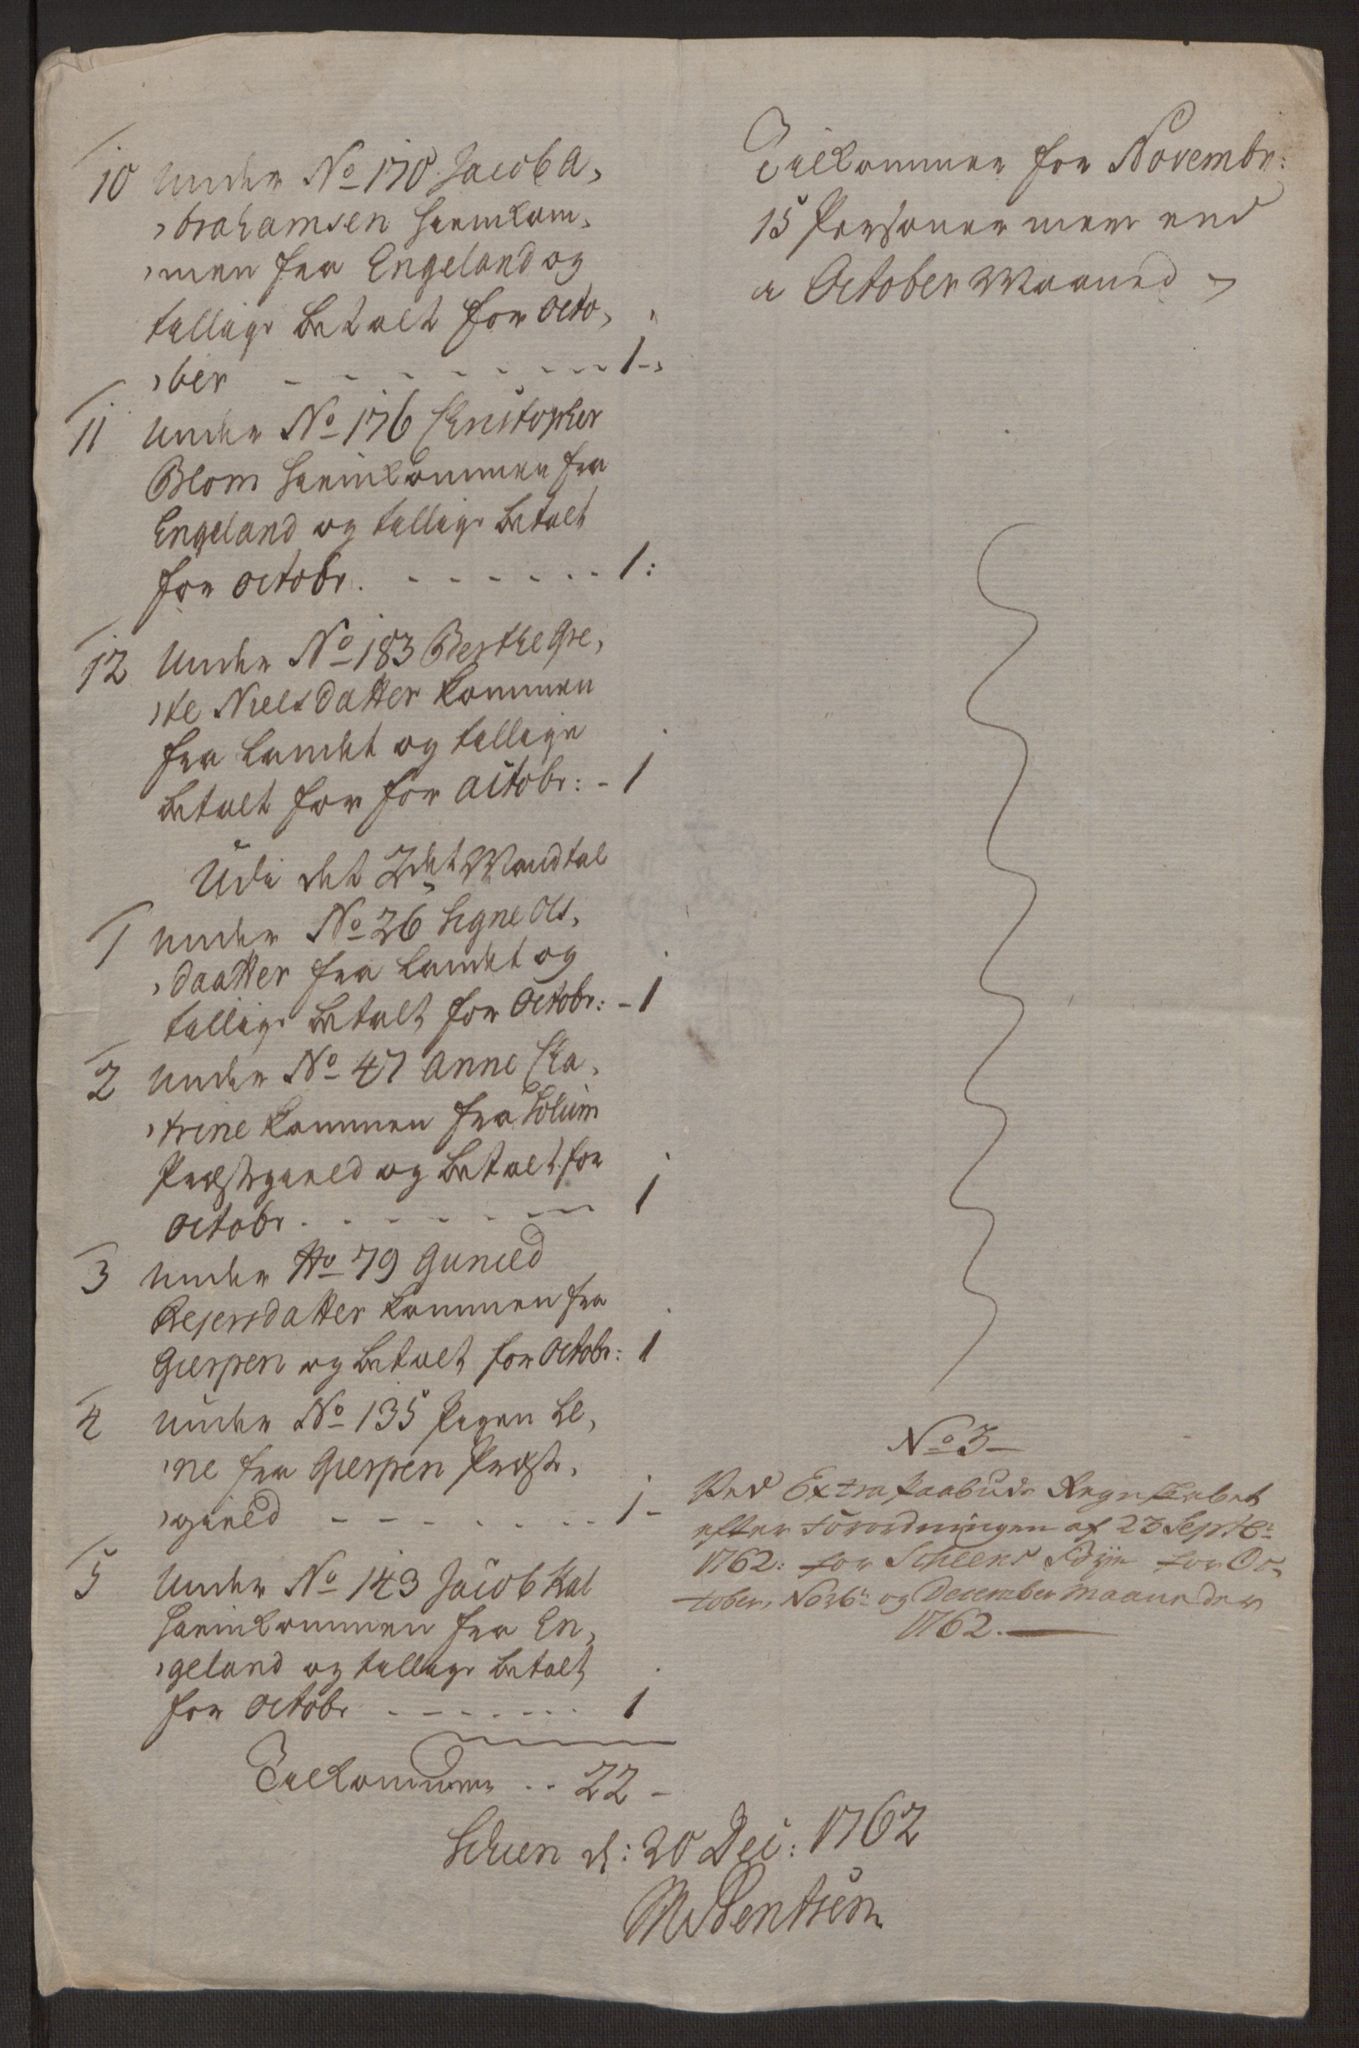 10 Under No 170 Jacob A,
,brahamsen hiemkom,
,men fra Engeland og
tillige betalt for Octo,
,ber - - - - - - - 1-,
11 Under No 176 Christopher
Blom hiemkommen fra
Engeland og tillige betalt
for Octobr. - - - - - - 1:
12 Under No 183 Berthe Gre,
,te Nielsdatter kommen
fra Landet og tillige
betalt for for Octobr: - 1
Udi det 2det Mandtal
1 Under No 26 Signe Ols,
,daatter fra Landet og
tillige betalt for Octobr: - 1
2 Under No 47 Anne Cha,
,trine kommen fra Solum
Præstegield og betalt for
Octobr. - - - - - - 1
3 Under No 79 Gunild
Rejersdatter kommen fra
Gierpen og betalt for Octobr: 1
4 Under No 135 Pigen Le,
,ne fra Gierpen Præste,
,gield - - - - - - - 1-
5 Under No 143 Jacob Kal
hiemkommen fra En,
,geland og tillige betalt
for Octobr - - - - - - 1
Tilkommer .. 22 -
Schien d: 20 Dec: 1762
Tilkommer for Novembr:
15 Personer mere end
i October Maaned
No 3
Ved Extra Paabuds Regnskabet
efter Forordningen af 23 Septbr:
1762: for Scheens Bye for Oc,
tober, Novbr: og December Maaneder
1762.